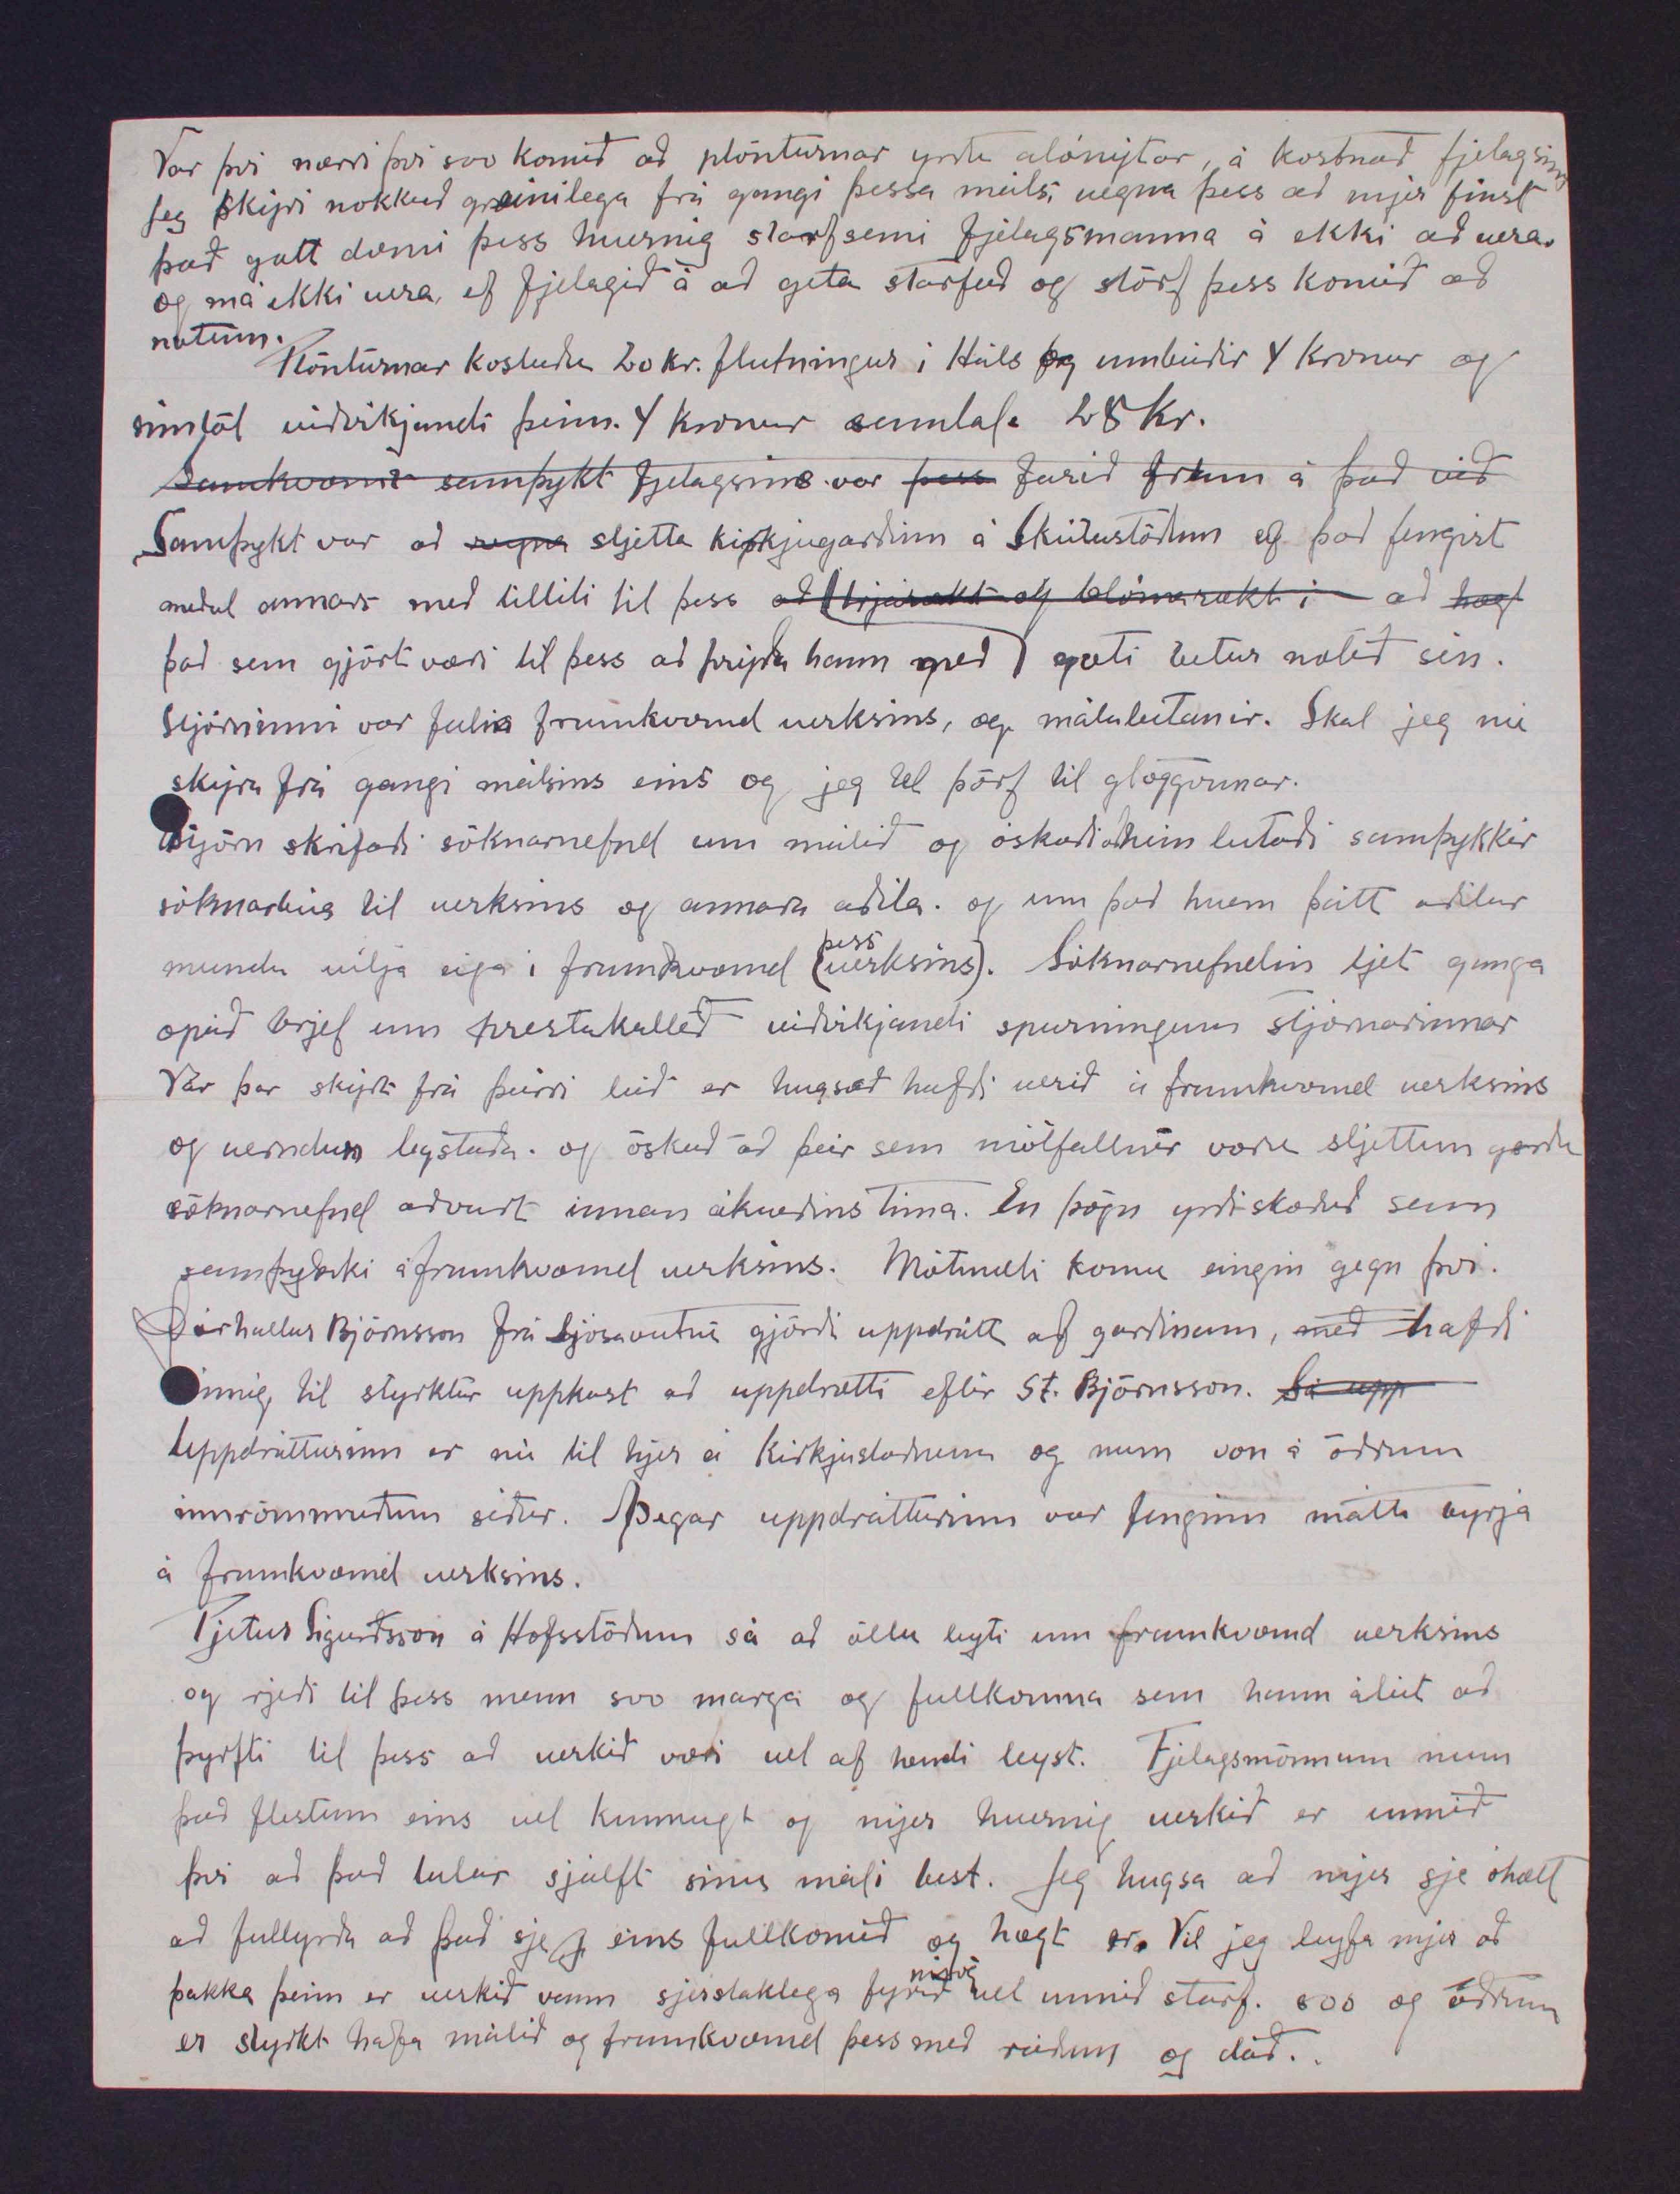 Var því nærri því svo komið að plönturnar yrðu alónýtar, á kostnað fjelagsins
Jeg skýri nokkuð greinilega frá gangi þessa máls, vegna þess að mjer finst
það gott dæmi þess hvernig starfsemi fjelagsmanna á ekki að vera.
og má ekki vera, ef fjelagið á að geta starfað og störf þess komið að
notum.
Plönturnar kostuðu 20 kr. flutningur í Háls og umbúðir 4 krónur og
símtöl viðvíkjandi þeim. 4 krónur samtals 28 kr.
Samkvæmt samþykt fjelagsins var þess farið fram á það við
Samþykt var að reyna sljetta kirkjugarðinn á Skútustöðum ef það fengist
meðal annars með tilliti til þess að trjárækt og blómarækt í að hægt
það sem gjört væri til þess að prýða hann með gæti betur notið sín.
Stjórninni var falin framkvæmd verksins, og málaleitanir. Skal jeg nú
skýra frá gangi málsins eins og jeg tel þörf til glöggvunar.
Stjórn skrifaði sóknarnefnd um málið og óskaði að hún leitaði samþykkir
sóknarbúa til verksins og annara aðila. og um það hvern þátt aðilar
þess
mundu vilja eiga í framkvæmd (verksins). Sóknarnefndin ljet ganga
opið brjef um prestakallið viðvíkjandi spurningum stjórnarinnar
Var þar skýrt frá þeirri leið er hugsað hafði verið á framkvæmd verksins
og verndun legstaða. og óskað að þeir sem mótfallnir væru sljettun gerðu
sóknarnefnd aðvart innan ákveðins tíma. En þögn yrði skoðuð sem
samþykki á framkvæmd verksins. Mótmæli komu eingin gegn því.
Þórhallur Björnsson frá Ljósavatni gjörði uppdrátt af garðinum, með hafði
einnig til styrktar uppkast að uppdrætti eftir St. Björnsson. Sá upp
Uppdrátturinn er nú til hjer á Kirkjustaðnum og mun von á öðrum
innrömmuðum síðar. Þegar uppdrátturinn var fenginn mátti byrja
á framkvæmd verksins.
Pjetur Sigurðsson á Hofsstöðum sá að öllu leyti um framkvæmd verksins
og rjeði til þess menn svo marga og fullkomna sem hann áleit að
þyrfti til þess að verkið væri vel af hendi leyst. Fjelagsmönnum mun
það flestum eins vel kunnugt og mjer hvernig verkið er unnið
því að það talar sjálft sínu máli best. Jeg hugsa að mjer sje óhætt
að fullyrða að það sje eins fullkomið og hægt er. Vil jeg leyfa mjer að
þakka þeim er verkið vann sjerstaklega fyrir vel unnið starf. svo og öðrum
er styrkt hafa málið og framkvæmd þess með ráðum og dáð..